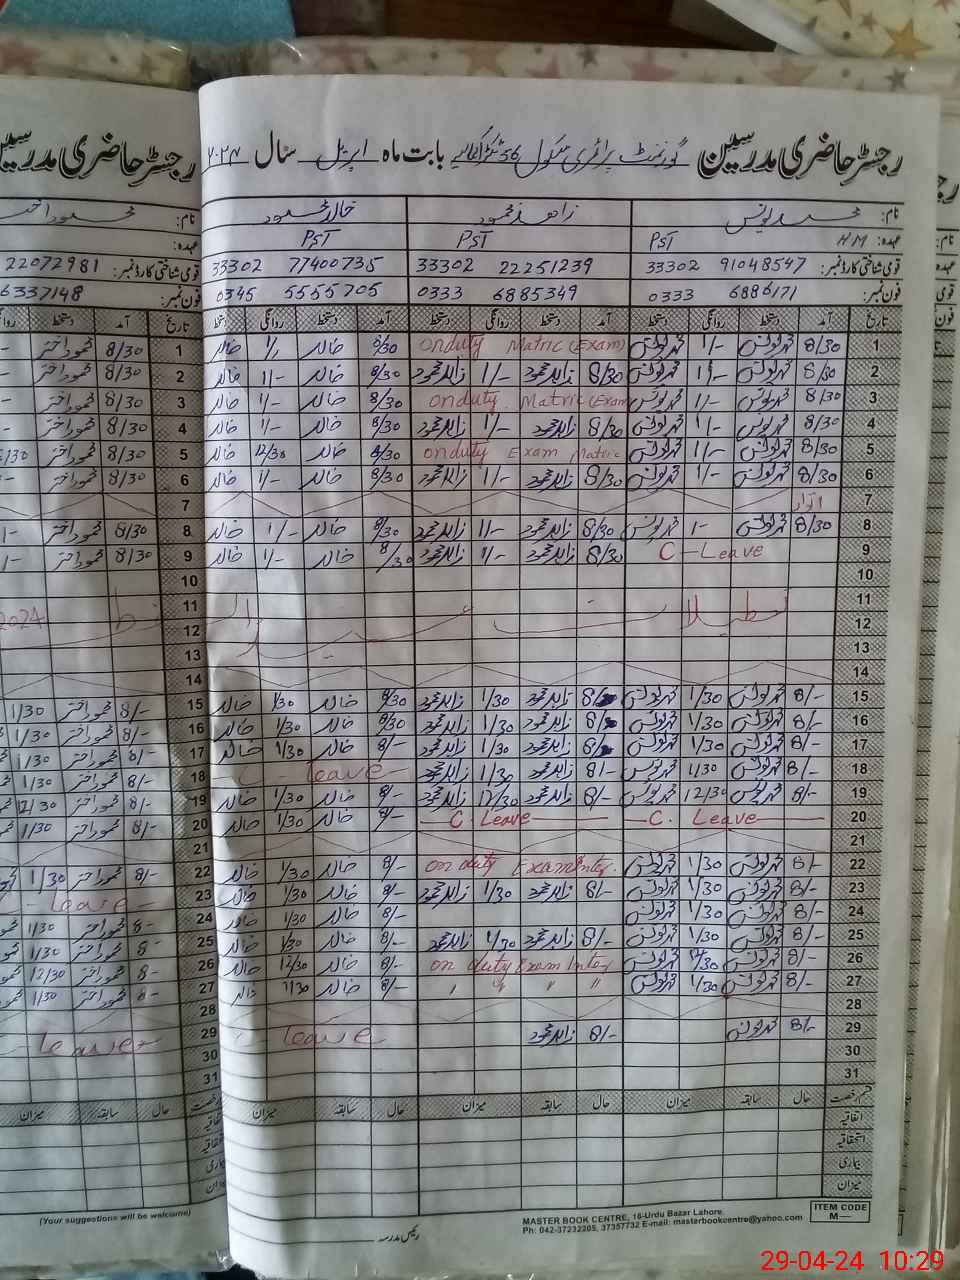 رجسٹر حاضری مدرسین گورنمنٹ پرائمری سکول 356 بابت ماہ اپریل سال ۲۰۲۴
نام: محمد یونس زاہد محمود خالد محمود
عہدہ: HM PST PST PST
قومی شناختی کارڈ نمبر: 33302 91048547 33302 22251239 33302 77400735
فون نمبر: 0333 6886171 0333 6885349 0345 5555705
تاریخ آمد دستخط روانگی دستخط آمد دستخط روانگی دستخط آمد دستخط روانگی دستخط
1 8/30 محمد یونس 1/- محمد یونس onduty Matric (Exam) 8/30 خالد 1/- خالد
2 8/30 محمد یونس 1/- محمد یونس 8/30 زاہد محمود 1/- زاہد محمود 8/30 خالد 1/- خالد
3 8/30 محمد یونس 1/- محمد یونس onduty. Matric (Exam) 8/30 خالد 1/- خالد
4 8/30 محمد یونس 1/- محمد یونس 8/30 زاہد محمود 1/- زاہد محمود 8/30 خالد 1/- خالد
5 8/30 محمد یونس 1/- محمد یونس onduty Exam Matric 8/30 خالد 12/30 خالد
6 8/30 محمد یونس 1/- محمد یونس 8/30 زاہد محمود 1/- زاہد محمود 8/30 خالد 1/- خالد
7 اتوار
8 8/30 محمد یونس 1- محمد یونس 8/30 زاہد محمود 1/- زاہد محمود 8/30 خالد 1/- خالد
9 C - Leave 8/30 زاہد محمود 1/- زاہد محمود 8/30 خالد 1/- خالد
10
11 تعطیلات عید
12
13
14
15 8/- محمد یونس 1/30 محمد یونس زاہد محمود 1/30 زاہد محمود 8/30 خالد 1/30 خالد
16 8/- محمد یونس 1/30 محمد یونس زاہد محمود 1/30 زاہد محمود 8/30 خالد 1/30 خالد
17 8/- محمد یونس 1/30 محمد یونس زاہد محمود 1/30 زاہد محمود 8/- خالد 1/30 خالد
18 8/- محمد یونس 1/30 محمد یونس 8/- زاہد محمود 1/30 زاہد محمود C - leave
19 8/- محمد یونس 12/30 محمد یونس 8/- زاہد محمود 12/30 زاہد محمود 8/- خالد 1/30 خالد
20 C. Leave C. Leave 8/- خالد 1/30 خالد
21
22 8/- محمد یونس 1/30 محمد یونس on duty Exam Inter. 8/- خالد 1/30 خالد
23 8/- محمد یونس 1/30 محمد یونس 8/- زاہد محمود 1/30 زاہد محمود 8/- خالد 1/30 خالد
24 8/- محمد یونس 1/30 محمد یونس 8/- خالد 1/30 خالد
25 8/- محمد یونس 1/30 محمد یونس 8/- زاہد محمود 1/30 زاہد محمود 8/- خالد 1/30 خالد
26 8/- محمد یونس 12/30 محمد یونس on duty Exam Inter 8/- خالد 12/30 خالد
27 8/- محمد یونس 1/30 محمد یونس " " " " 8/- خالد 1/30 خالد
28
29 8/- محمد یونس 8/- زاہد محمود leave
30
31
قسم رخصت حال سابقہ میزان حال سابقہ میزان حال سابقہ میزان
اتفاقیہ
استحقاقیہ
بیماری
میزان
ITEM CODE
M—
MASTER BOOK CENTRE, 16-Urdu Bazar Lahore.
Ph: 042-37232205, 37357732 E-mail: masterbookcentre@yahoo.com
رئیس مدرسہ
رجسٹر حاضری مدرسین
محمود اختر
22072981
6337148
آمد دستخط
8/30 محمود اختر
8/30 محمود اختر
8/30 محمود اختر
8/30 محمود اختر
8/30 محمود اختر
8/30 محمود اختر
8/30 محمود اختر
8/30 محمود اختر
2024
8/- محمود اختر 1/30
8/- محمود اختر 1/30
8/- محمود اختر 1/30
8/- محمود اختر 1/30
8/- محمود اختر 12/30
8/- محمود اختر 1/30
8/- محمود اختر 1/30
leave
8- محمود اختر 1/30
8- محمود اختر 1/30
8- محمود اختر 12/30
8- محمود اختر 1/30
leave
حال سابقہ میزان
(Your suggestions will be welcome)
29-04-24 10:29